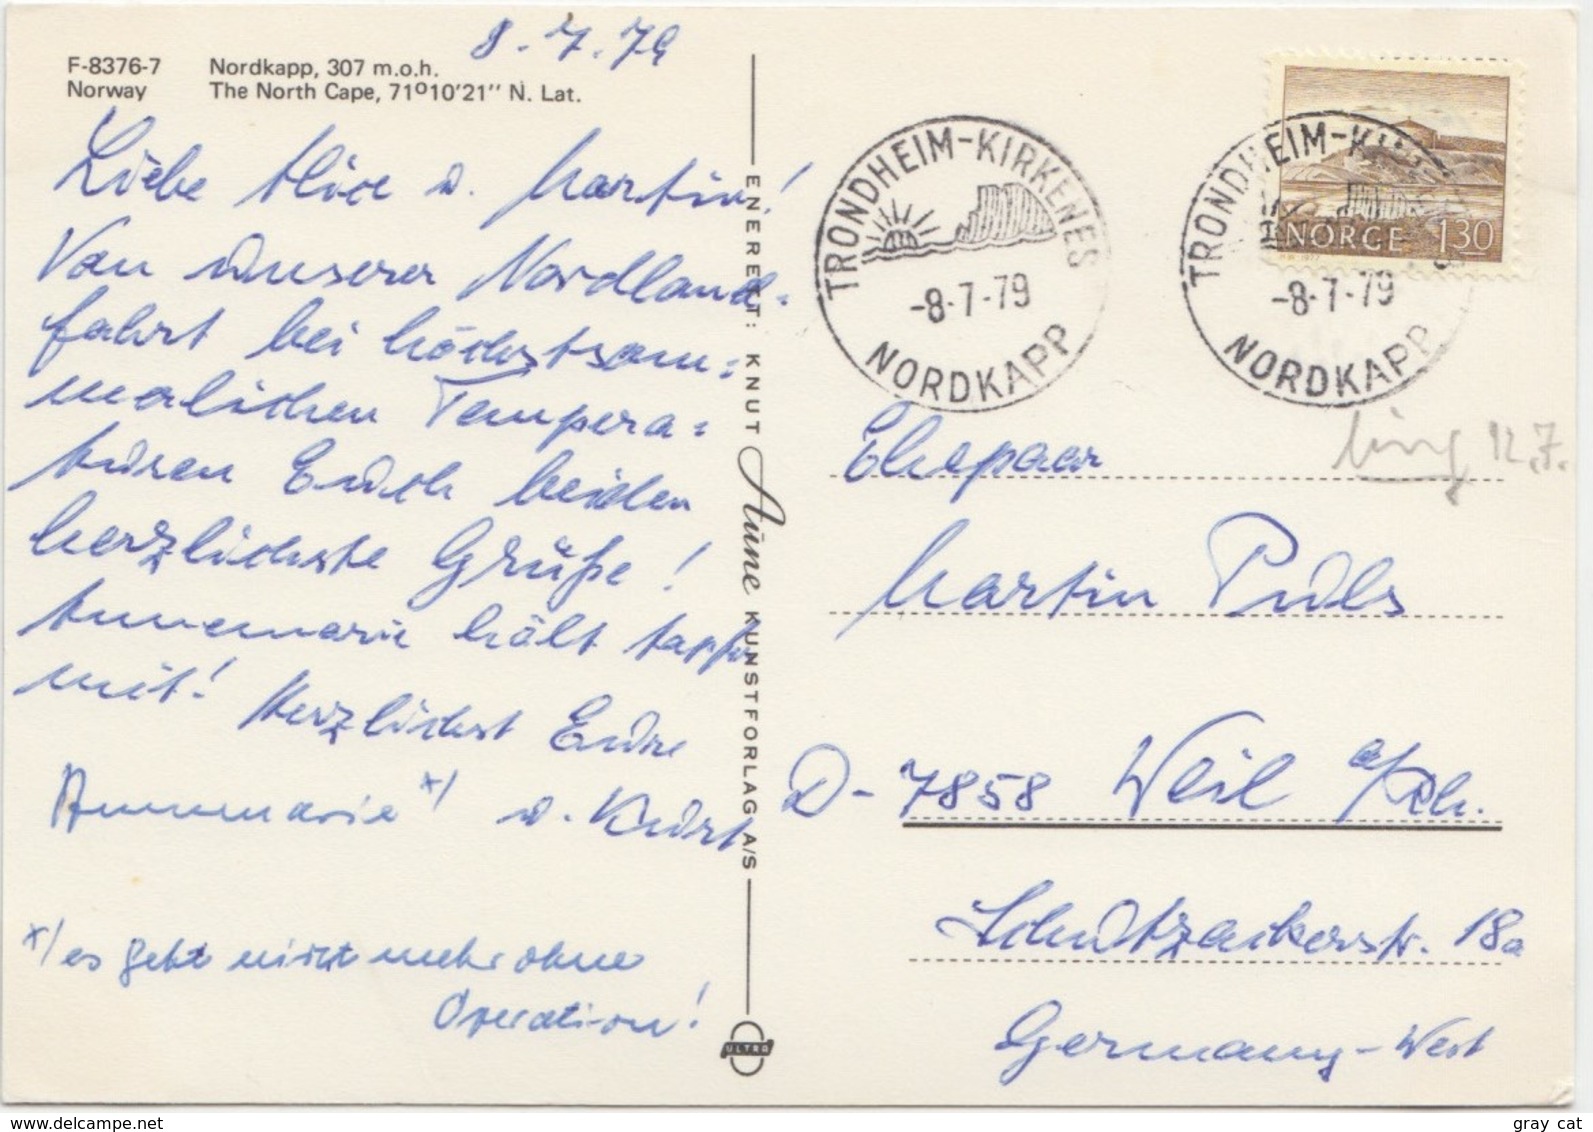 8.7.79
F-8376-7 Nordkapp, 307 m.o.h.
Norway The North Cape, 71°10'21'' N. Lat.
Liebe Alice u. Martin!
Von unserer Nordland=
fahrt bei höchstsom=
merlichen Tempera=
turen Euch beiden
herzlichste Grüße!
Annemarie hält tapfer
mit! Herzlichst Eure
Annemarie *) u. Kurt
*) es geht nicht mehr ohne
Operation!
ENERETT: KNUT Aune KUNSTFORLAG A/S
ULTRA
TRONDHEIM-KIRKENES
-8-7-79
NORDKAPP
TRONDHEIM-KI
-8-7-79
NORDKAPP
NORGE 130
12.7.
Ehepaar
Martin Puls
D-7858 Weil a/Rh.
Schützackerstr. 18a
Germany-West
gray_cat